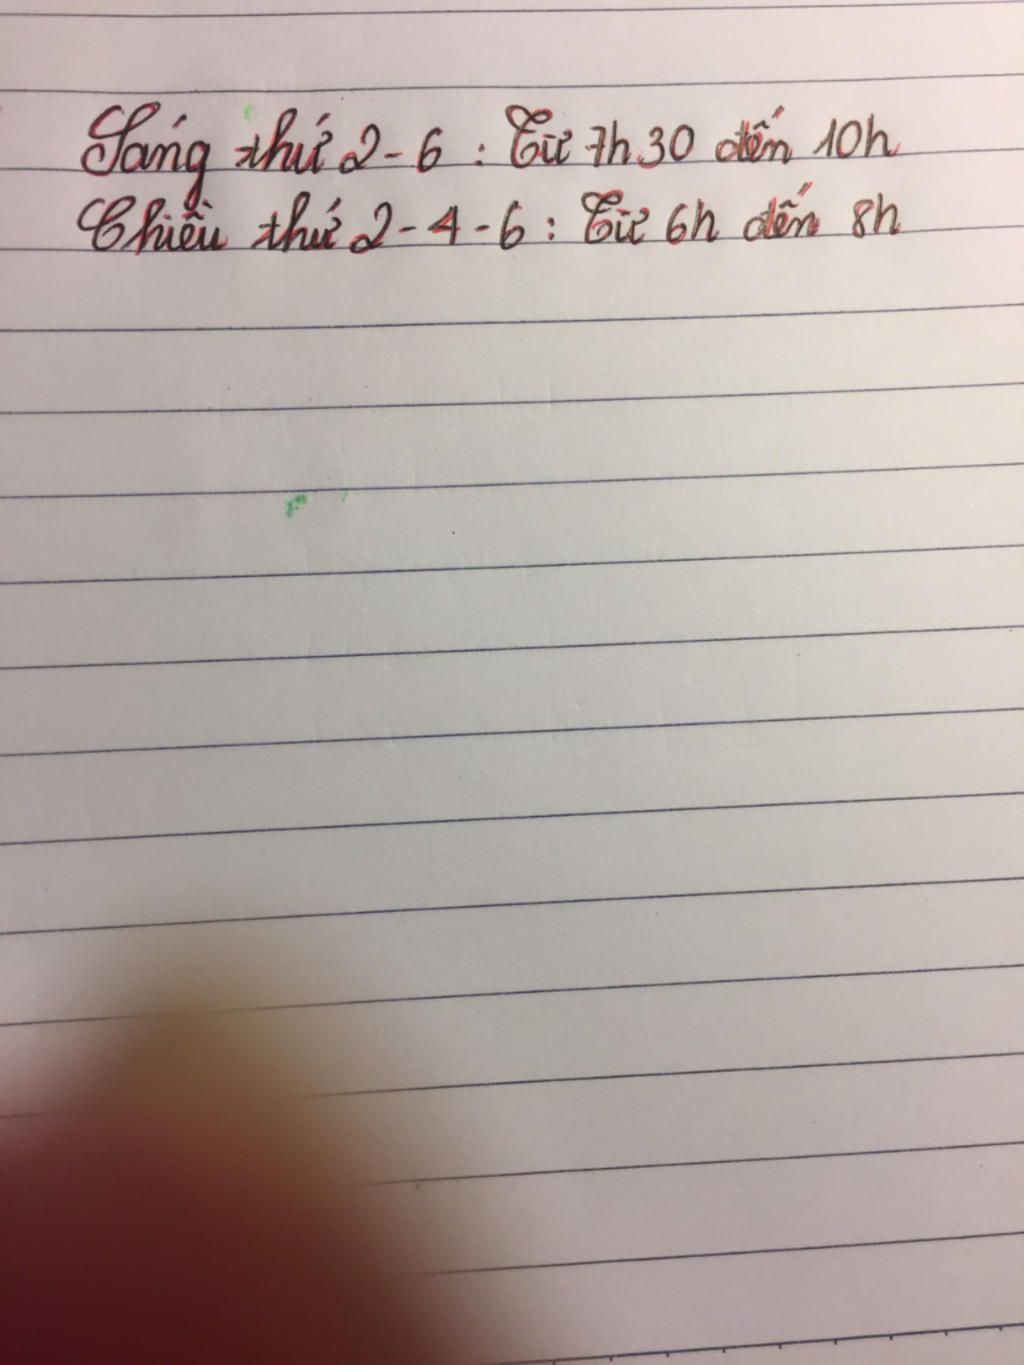 Sáng thứ 2-6 : Từ 7h30 đến 10h
Chiều thứ 2-4-6 : Từ 6h đến 8h